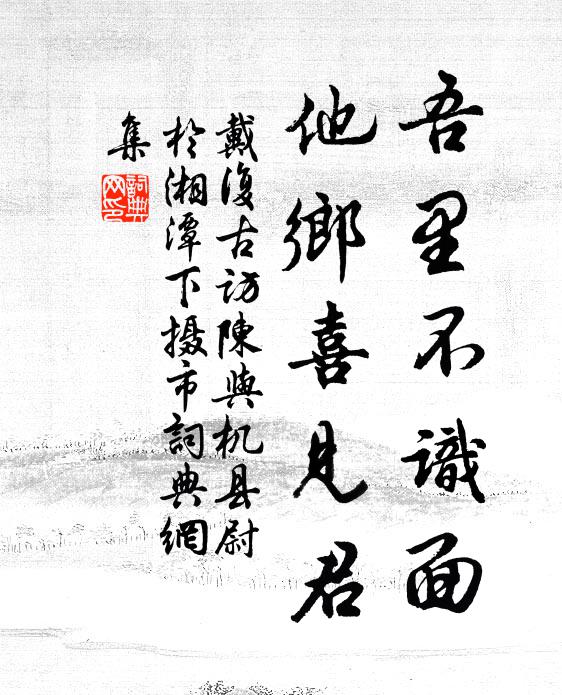 吾里不識面
他鄉喜見君
戴復古訪陳與机县尉
於湘潭下摄市詞典網
集
詞典
网印